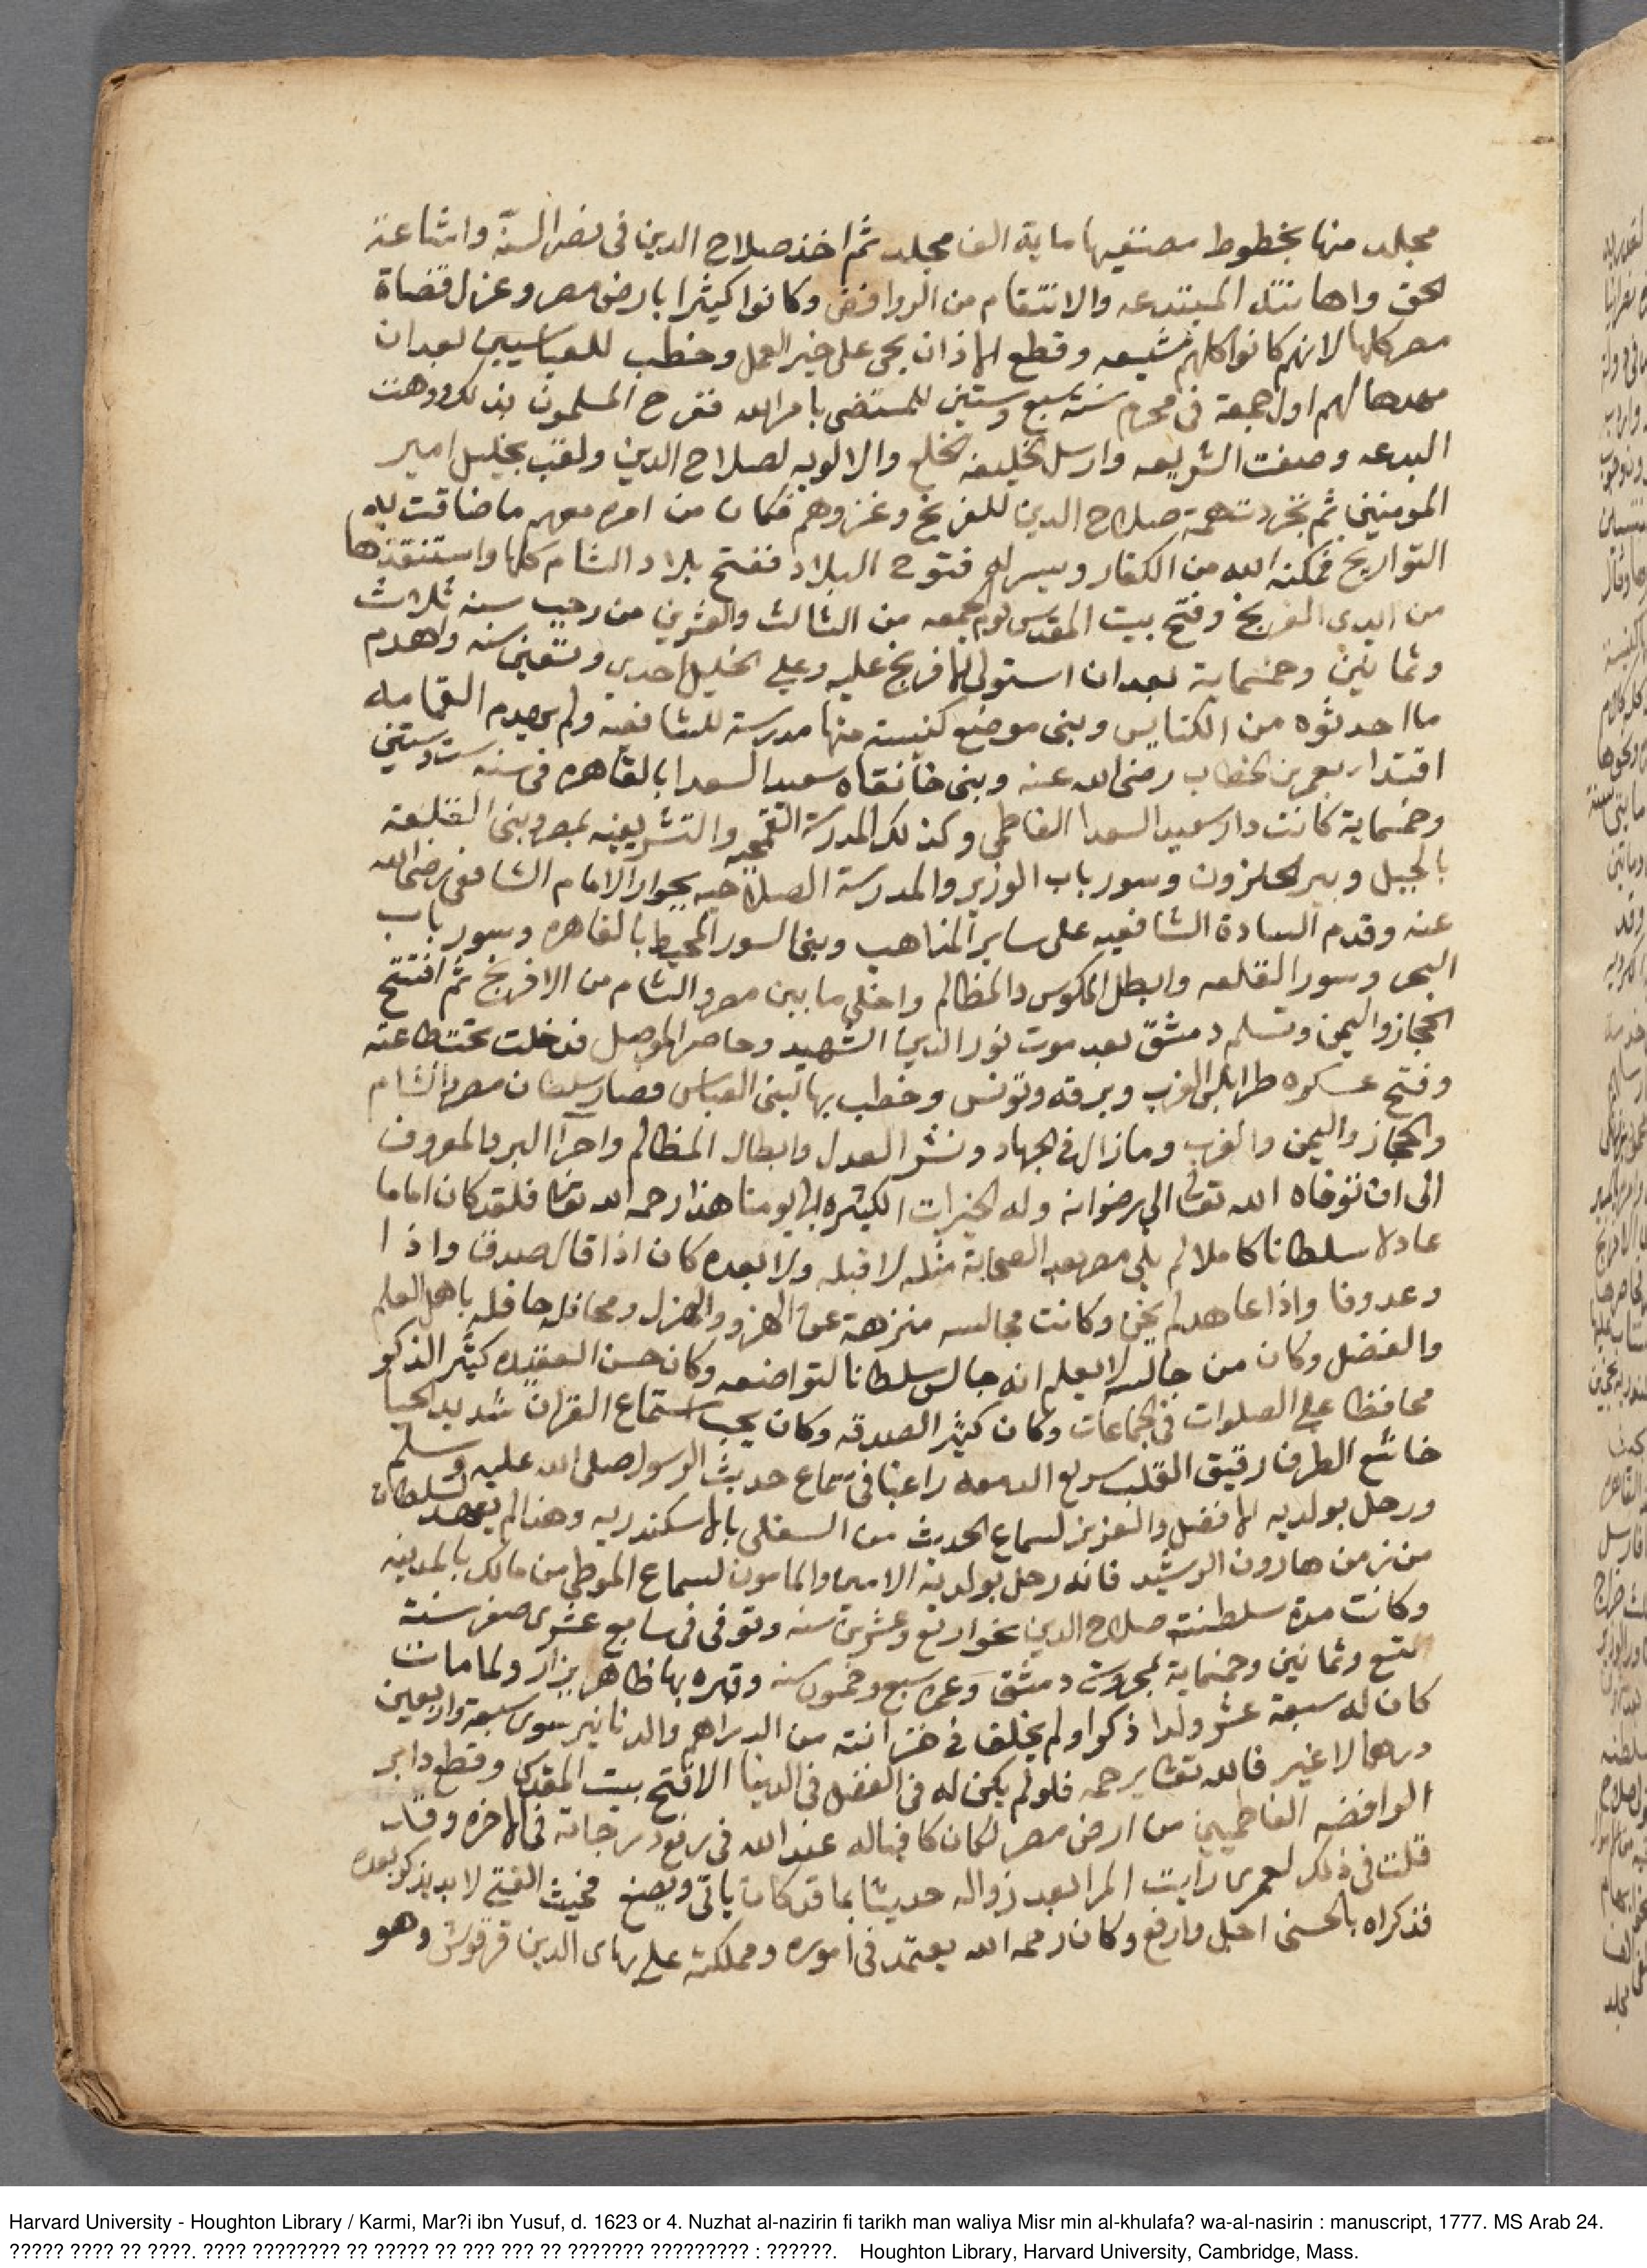 مجلد منها بخطوط مصنفيها ماية الف مجلد ثم اخذ صلاح الدين في نصر السنة واشاعة
الحق واهانة المبتدعه والانتقام من الروافض وكانوا كثيرا بارض مصر وعزل قضاة
مصر كلها لانهم كانوا كلهم شيعه وقطع الاذان بحي على خير العمل وخطب للعباسيين بعدان
لهم اول جمعة في محرم سنة سبع وستين للمستضي بامرالله ففرح المسلمون بذلك ووهنت
البدعه وصفت الشريعه وارسل الخليفه الخلع والالويه لصلاح الدين ولقب بخليل امير
المومنين ثم تجردت همة صلاح الدين للفرنج وغزوهم فكان من امره معهم ما ضاقت به
التواريخ فمكنه الله من الكفار ويسر له فتوح البلاد ففتح بلاد الشام كلها واستنقذها
من ايدي الفرنج وفتح بيت المقدس يوم الجمعه من الثالث والعشرين من رجب سنه ثلاث
وثمانين وخمسماية بعدان استولي الافرنج عليه وعلي الخليل احدي وتسعين سنه واهدم
ما احدثوه من الكنايس وبنى موضع كنيسة منها مدرسة للشافعيه ولم يهدم القمامه
اقتداء بعمر بن الخطاب رضي الله عنه وبنى خانقاه سعيد السعدا بالقاهره في سنه ست وستين
وخمسماية كانت دار سعيد السعدا الفاطمي وكذلك المدرسة القمحيه والشريفيه بمصر وبنى القلعة
بالجبل وبير الحلزون وسور باب الوزير والمدرسة الصلاحيه بجوار الامام الشافعي رضي الله
عنه وقدم السادة الشافعيه على ساير المذاهب وبنى السور المحيط بالقاهره وسور باب
البحر وسور القلعه وابطل المكوس والمظالم واخلي مابين مصر والشام من الافرنج ثم افتتح
الحجاز واليمن وتسلم دمشق بعد موت نورالدين الشهيد وحاصر الموصل فدخلت تحت طاعته
وفتح عسكره طرابلس الغرب وبرقه وتونس وخطب بها لبنى العباس وصار سلطان مصر والشام
والحجاز واليمن والغرب ومازال في الجهاد ونشر العدل وابطال المظالم واجرا البر والمعروف
الى ان توفاه الله تعالى الي رضوانه وله الخيرات الكثيره الي يومنا هذا رحمه الله تعالى فلقد كان اماما
عادلا سلطانا كاملا لم يلي مصر بعد الصحابة مثله لا قبله ولا بعده كان اذا قال صدق واذا
وعد وفا واذا عاهد لم يخن وكانت مجالسه منزهة عن الهزو والهزل ومحافله حافله باهل العلم
والفضل وكان من جالسه لا يعلم انه جالس سلطانا لتواضعه وكان حسن العقيده كثير الذكر
محافظا علي الصلوات في الجماعات وكان كثير الصدقه وكان يحب استماع القران شديد الحيا
خاشع الطرف رقيق القلب سريع الدمعه راغبا في سماع حديث الرسول صلى الله عليه وسلم
ورحل بولديه الافضل والعزيز لسماع الحديث من السفلي بالاسكندريه وهذا لم يعهد لسلطان
من زمن هارون الرشيد فانه رحل بولديه الامين والمامون لسماع الموطي من مالك بالمدينه
وكانت مدة سلطنته صلاح الدين نحو اربع وعشرين سنه وتوفى في سابع عشرى صفر سنة
تسع وثمانين وخمسماية بمحروسة دمشق وعمره سبع وخمسون سنه وقبره بها ظاهر يزار ولما مات
كان له سبعة عشر ولدا ذكرا ولم يخلف في خزانته من الدراهم والدنانير سوى سبعة واربعين
درهما لا غير فالله تعالى يرحمه فلولم يكن له في الفضل في الدينا الا فتح بيت المقدس وقطع دابر
الرافضه الفاطميين من ارض مصر لكان كافيا له عند الله في رفع درجاته في الاخره وقد
قلت في ذلك لعمرى رايت المرا بعد زواله حديثا بما قد كان ياتى ويصنع فحيث الفتي لابد يذكر بعده
فذكراه بالحسنى اجل وارفع وكان رحمه الله يعتمد في اموره ومملكته على بهاى الدين قرقوش وهو